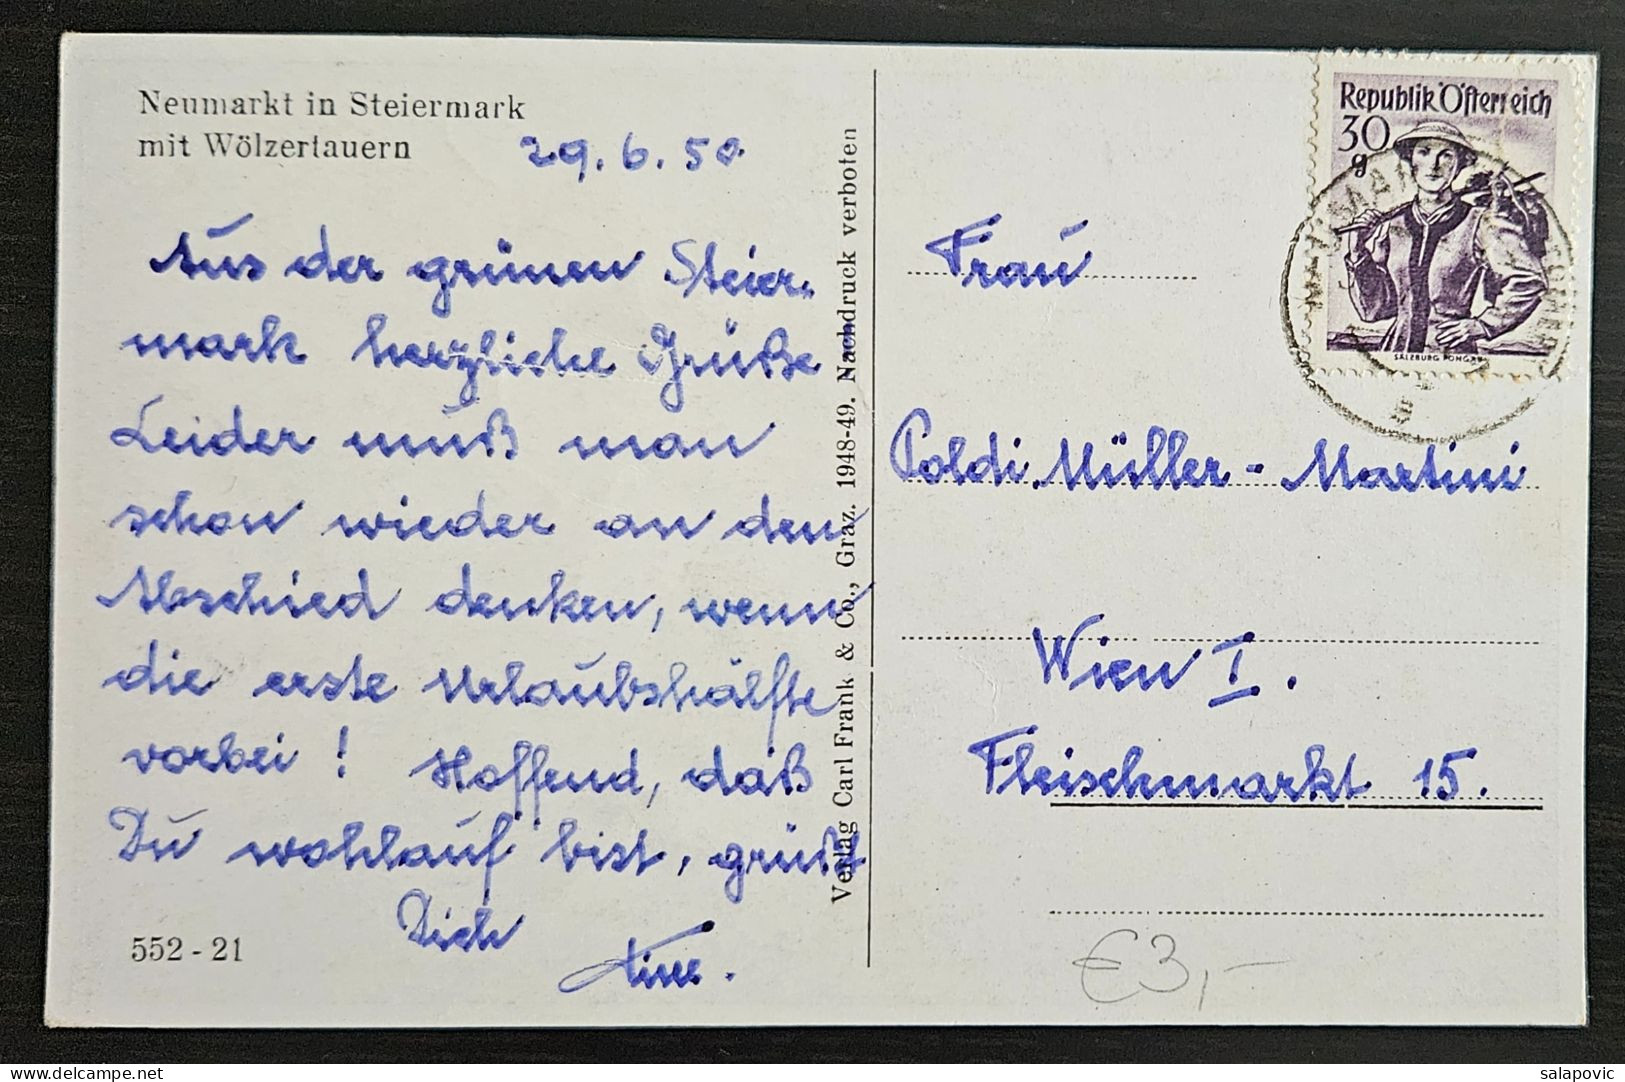 Neumarkt in Steiermark
mit Wölzertauern
29.6.50
Aus der grünen Steier-
mark herzliche Grüße
Leider muß man
schon wieder an den
Abschied denken, wenn
die erste Urlaubshälfte
vorbei! Hoffend, daß
Du wohlauf bist, grüßt
Dich
552-21
Verlag Carl Frank & Co., Graz. 1948-49. Nachdruck verboten
Republik Österreich
30
g
SALZBURG PONGAU
Frau
Poldi Müller-Martini
Wien I.
Fleischmarkt 15.
€3,-
delcampe.net
salapovic